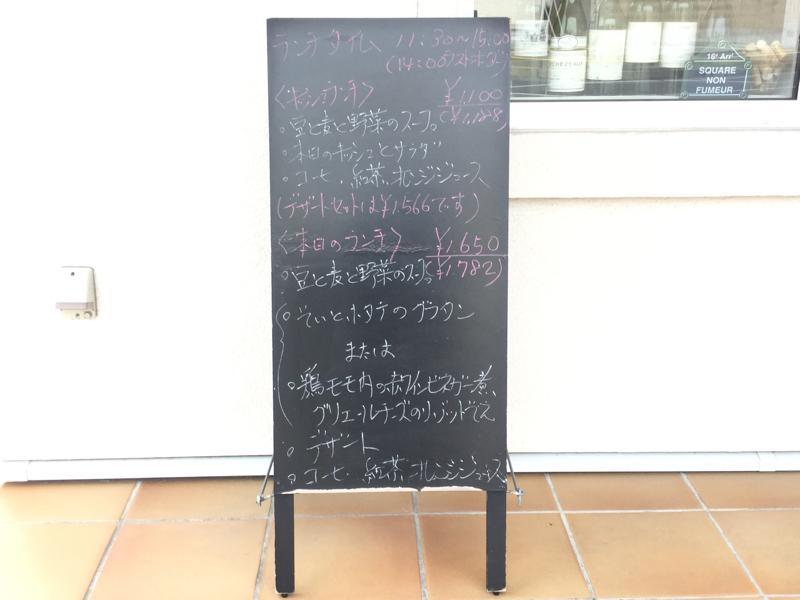 ランチタイム 11:30~15:00
(14:00ラストオーダー)
〈キッシュランチ〉 ¥1.100
(¥1.188)
。豆と麦と野菜のスープ。
。本日のキッシュとサラダ
。コーヒー、紅茶、オレンジジュース
(デザートセットは¥1.566です)
〈本日のランチ〉 ¥1.650
(¥1.782)
。豆と麦と野菜のスープ。
。とホタテのグラタン
または
。鶏モモ肉の白ワインビネガー煮、
グリュイエールチーズのリゾットぞえ
。デザート
。コーヒー、紅茶、オレンジジュース
16e Arrt
SQUARE
NON
FUMEUR